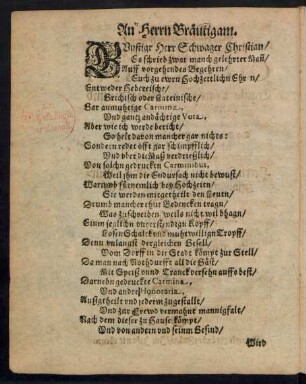 An Herrn Bräutigam.
GVnstiger Herr Schwager Christian/
Es schrieb zwar manch gelehrter Mañ/
Auff vorgehendes Begehren/
Euch zu ewrn Hochzeitlichn Ehrn/
Entweder Hebreische/
Grechisch oder Lateinische/
Gar anmuhtige Carmina,
Vnd gantz andächtige Vota,
Aber wie ich werde bericht/
So helt davon mancher gar nichts:
Sondern redet offt gar schimpfflich/
Vnd vber die Maß verdrießlich/
Von solchn gedruckten Carminibus,
Weil jhm die Endursach nicht bewust/
Warumb fürnemlich bey Hochzeiten/
Sie werden mitgetheilt den Leuten/
Drumb mancher thut Bedencken tragn/
Was zuschreiben/ weils nicht wil bhagn/
Einem jeglichn vnverständign Kopff/
Losen Schalck vnd muhtwillign Tropff/
Denn vnlangst dergleichen Gesell/
Vom Dorff in die Stadt kömpt zur Stell/
Da man nach Notthdurfft all die Gäst/
Mit Speiß vnnd Tranck versehn auffs best/
Darneben gedruckte Carmina,
Vnd andre Honoraria,
Außgetheilt vnd jederm zugestallt/
Vnd zur Frewd vermahnt mannigfalt/
Nach dem dieser zu Hause kömpt/
Vnd von andern vnd seinm Gesind/
Wird